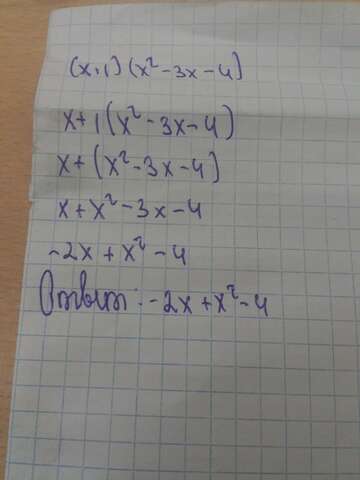 (x+1)(x²-3x-4)
x+1(x²-3x-4)
x+(x²-3x-4)
x+x²-3x-4
-2x+x²-4
Ответ: -2x+x²-4